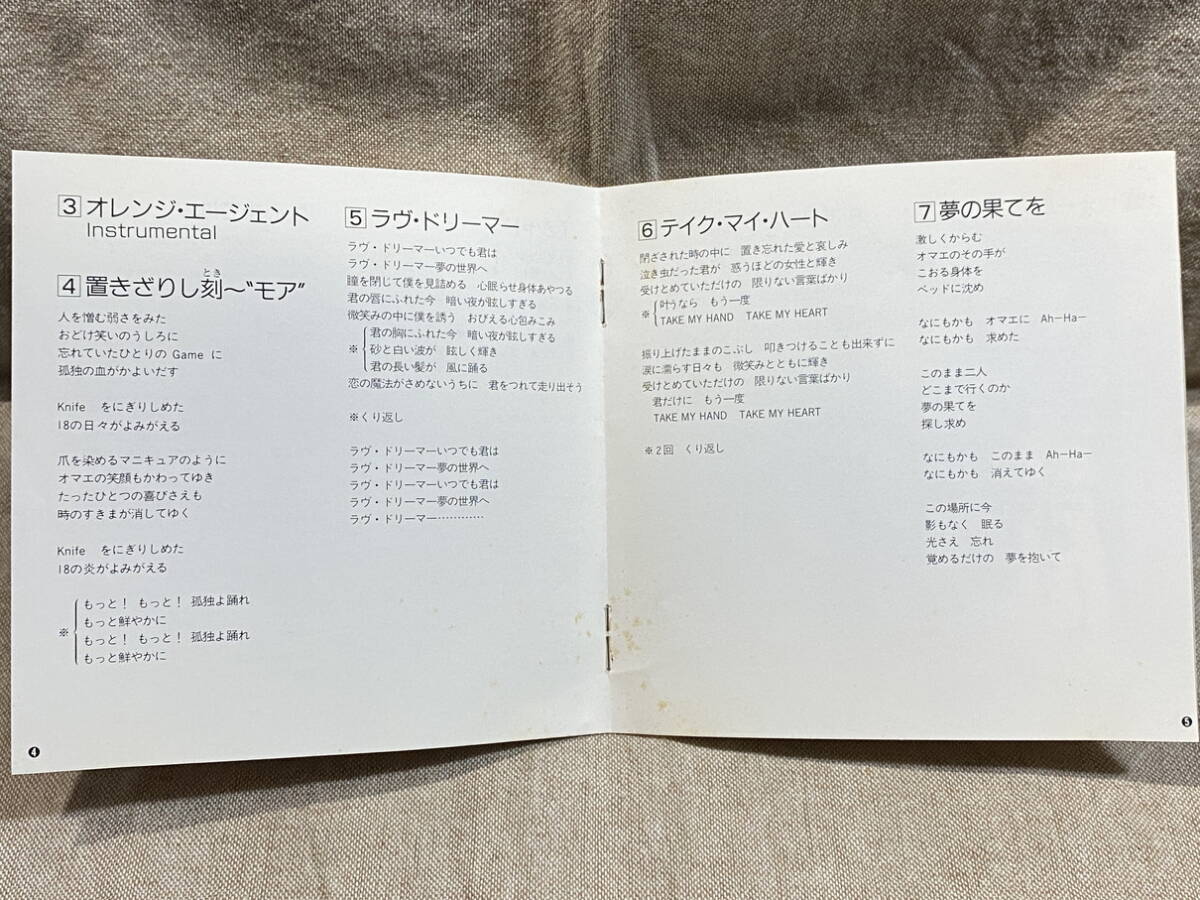 3 オレンジ・エージェント
Instrumental
4 置きざりし刻〜“モア”
とき
人を憎む弱さをみた
おどけ笑いのうしろに
忘れていたひとりの Game に
孤独の血がかよいだす
Knife をにぎりしめた
18の日々がよみがえる
爪を染めるマニキュアのように
オマエの笑顔もかわってゆき
たったひとつの喜びさえも
時のすきまが消してゆく
Knife をにぎりしめた
18の炎がよみがえる
※
もっと! もっと! 孤独よ踊れ
もっと鮮やかに
もっと! もっと! 孤独よ踊れ
もっと鮮やかに
❹
5 ラヴ・ドリーマー
ラヴ・ドリーマーいつでも君は
ラヴ・ドリーマー夢の世界へ
瞳を閉じて僕を見詰める 心眠らせ身体あやつる
君の唇にふれた今 暗い夜が眩しすぎる
微笑みの中に僕を誘う おびえる心包みこみ
※
君の胸にふれた今 暗い夜が眩しすぎる
砂と白い波が 眩しく輝き
君の長い髪が 風に踊る
恋の魔法がさめないうちに 君をつれて走り出そう
※くり返し
ラヴ・ドリーマーいつでも君は
ラヴ・ドリーマー夢の世界へ
ラヴ・ドリーマーいつでも君は
ラヴ・ドリーマー夢の世界へ
ラヴ・ドリーマー…………
6 テイク・マイ・ハート
閉ざされた時の中に 置き忘れた愛と哀しみ
泣き虫だった君が 惑うほどの女性と輝き
受けとめていただけの 限りない言葉ばかり
※
叶うなら もう一度
TAKE MY HAND TAKE MY HEART
振り上げたままのこぶし 叩きつけることも出来ずに
涙に濡らす日々も 微笑みとともに輝き
受けとめていただけの 限りない言葉ばかり
君だけに もう一度
TAKE MY HAND TAKE MY HEART
※2回 くり返し
7 夢の果てを
激しくからむ
オマエのその手が
こおる身体を
ベッドに沈め
なにもかも オマエに Ah−Ha−
なにもかも 求めた
このまま二人
どこまで行くのか
夢の果てを
探し求め
なにもかも このまま Ah−Ha−
なにもかも 消えてゆく
この場所に今
影もなく 眠る
光さえ 忘れ
覚めるだけの 夢を抱いて
❺